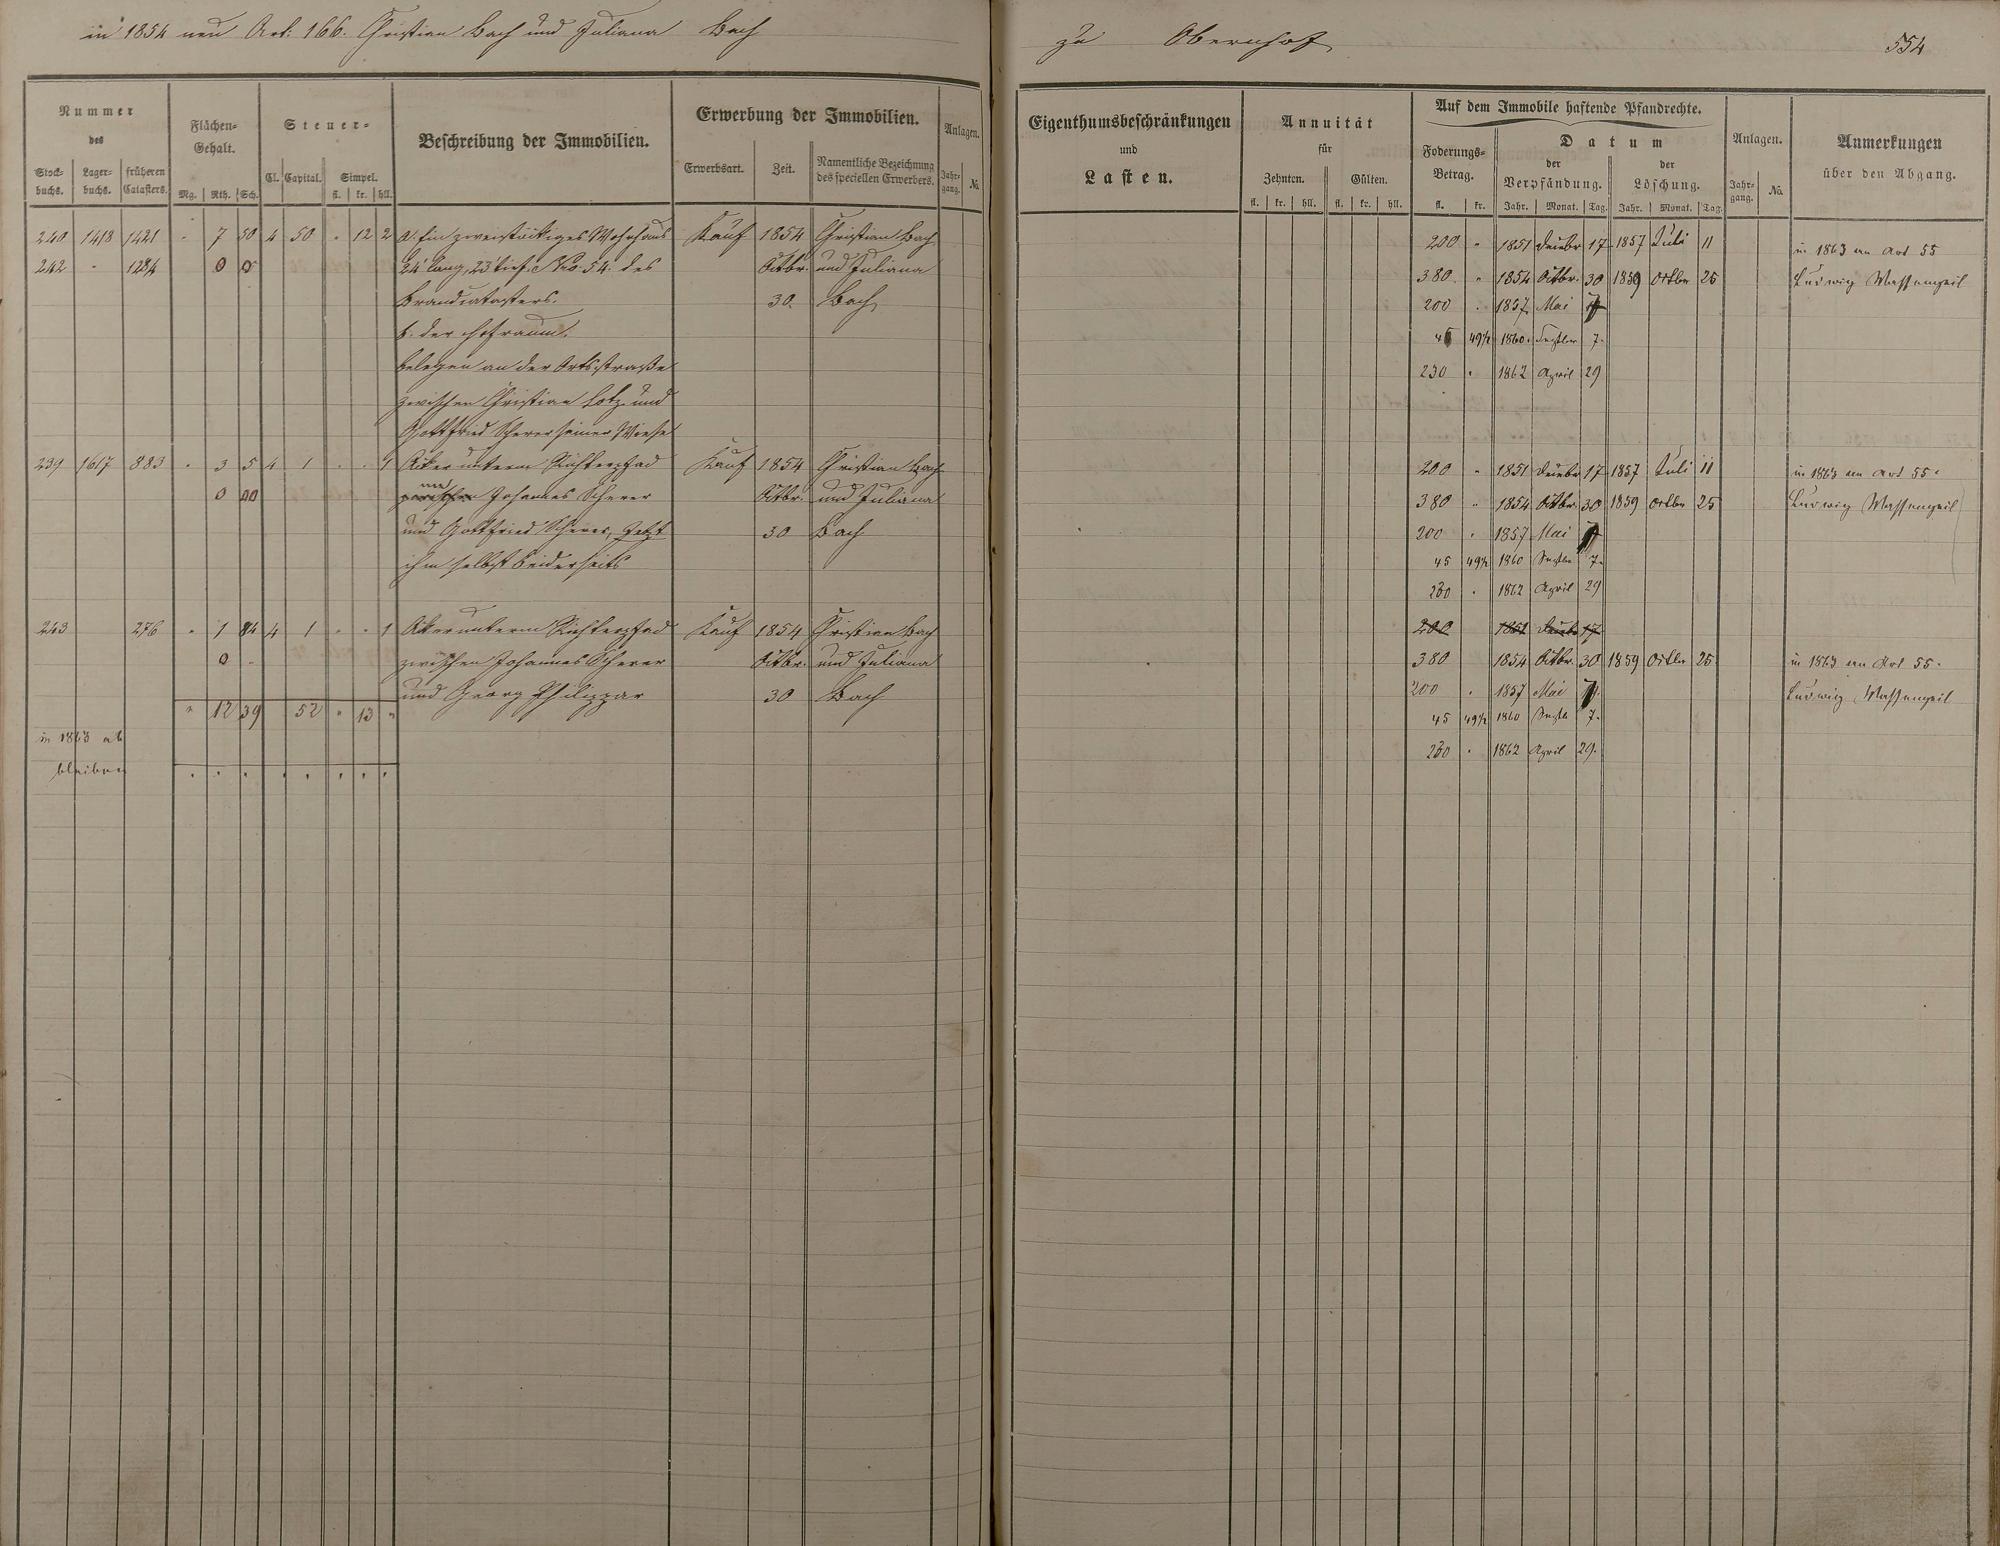 in 1854 neu Art: 166. Christian Bach und Juliana Bach
zu Obernhof
554
Nummer
des
Stock-
buchs.
Lager-
buchs.
früheren
Catasters.
Flächen-
Gehalt.
Mg. Rth. Sch.
Steuer-
Cl. Capital. Simpel.
fl. kr. hll.
Beschreibung der Immobilien.
Erwerbung der Immobilien.
Erwerbsart. Zeit.
Namentliche Bezeichnung
des speciellen Erwerbers.
Anlagen.
Jahr-
gang.
No.
240 1418 1421 " 7 50 4 50 " 12 2 a. Ein zweistöckiges Wohnhaus Kauf 1854 Christian Bach
242 " 1284 0 0 24' lang, 23' tief. No. 54. des Octbr. und Juliana
Brandcatasters. 30. Bach
b. der Hofraum.
belegen an der Ortsstraße
zwischen Christian Lotz und
Gottfried Scherer seiner Wiese
239 1617 883 " 3 5 4 1 " " 1 Acker unterm Richterpfad Kauf 1854 Christian Bach
0 00 zwischen Johannes Scherer Octbr. und Juliana
und Gottfried Scherer, Jetzt 30 Bach
ihm selbst beiderseits
243 276 " 1 84 4 1 " " 1 Acker unterm Richterpfad Kauf 1854 Christian Bach
0 " zwischen Johannes Scherer Octbr. und Juliana
und Georg Philippar 30 Bach
" 12 39 52 " 13 "
in 1863 ab
bleiben " " " " " " " "
Eigenthumsbeschränkungen
und
Lasten.
Annuität
für
Zehnten. Gülten.
fl. kr. hll. fl. kr. hll.
Auf dem Immobile haftende Pfandrechte.
Foderungs-
Betrag.
fl. kr.
Datum
der
Verpfändung.
Jahr. Monat. Tag.
der
Löschung.
Jahr. Monat. Tag.
Anlagen.
Jahr-
gang.
No.
Anmerkungen
über den Abgang.
200 " 1851 Decbr 17 1857 Juli 11 in 1863 an Art 55
380 " 1854 Octbr. 30 1859 Octbr 25 Ludwig
200 " 1857 Mai
49½ 1860 Septbr 7.
230 " 1862 April 29
200 " 1851 Decbr 17 1857 Juli 11 in 1863 an Art 55.
380 " 1854 Octbr. 30 1859 Octbr 25 Ludwig
200 " 1857 Mai
45 49½ 1860 Septbr 7.
230 " 1862 April 29
200 1851 Decbr 17
380 1854 Octbr. 30 1859 Octbr 25 in 1863 an Art 55.
200 " 1857 Mai Ludwig
45 49½ 1860 Septbr 7.
230 " 1862 April 29.